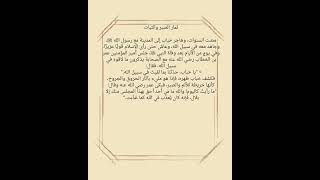 ثمار الصبر والثبات
مضت السنوات، وهاجر خباب إلى المدينة مع رسول الله ﷺ،
وجاهد معه في سبيل الله، وعاش حتى رأى الإسلام قويًا عزيزًا.
وفي يوم من الأيام بعد وفاة النبي ﷺ جلس أمير المؤمنين عمر
بن الخطاب رضي الله عنه مع الصحابة يتذكرون ما لاقوه في
سبيل الله، فقال:
"يا خباب، حدثنا بما لقيت في سبيل الله."
فكشف خباب ظهره، فإذا هو مليء بآثار الحروق والجروح،
كأنها خريطة للألم والصبر، فبكى عمر رضي الله عنه وقال:
"ما رأيت كاليوم! والله ما من أحد أحق بهذا المجلس منك إلا
بلال، فإنه كان يُعذب في الله كما عُذبت."